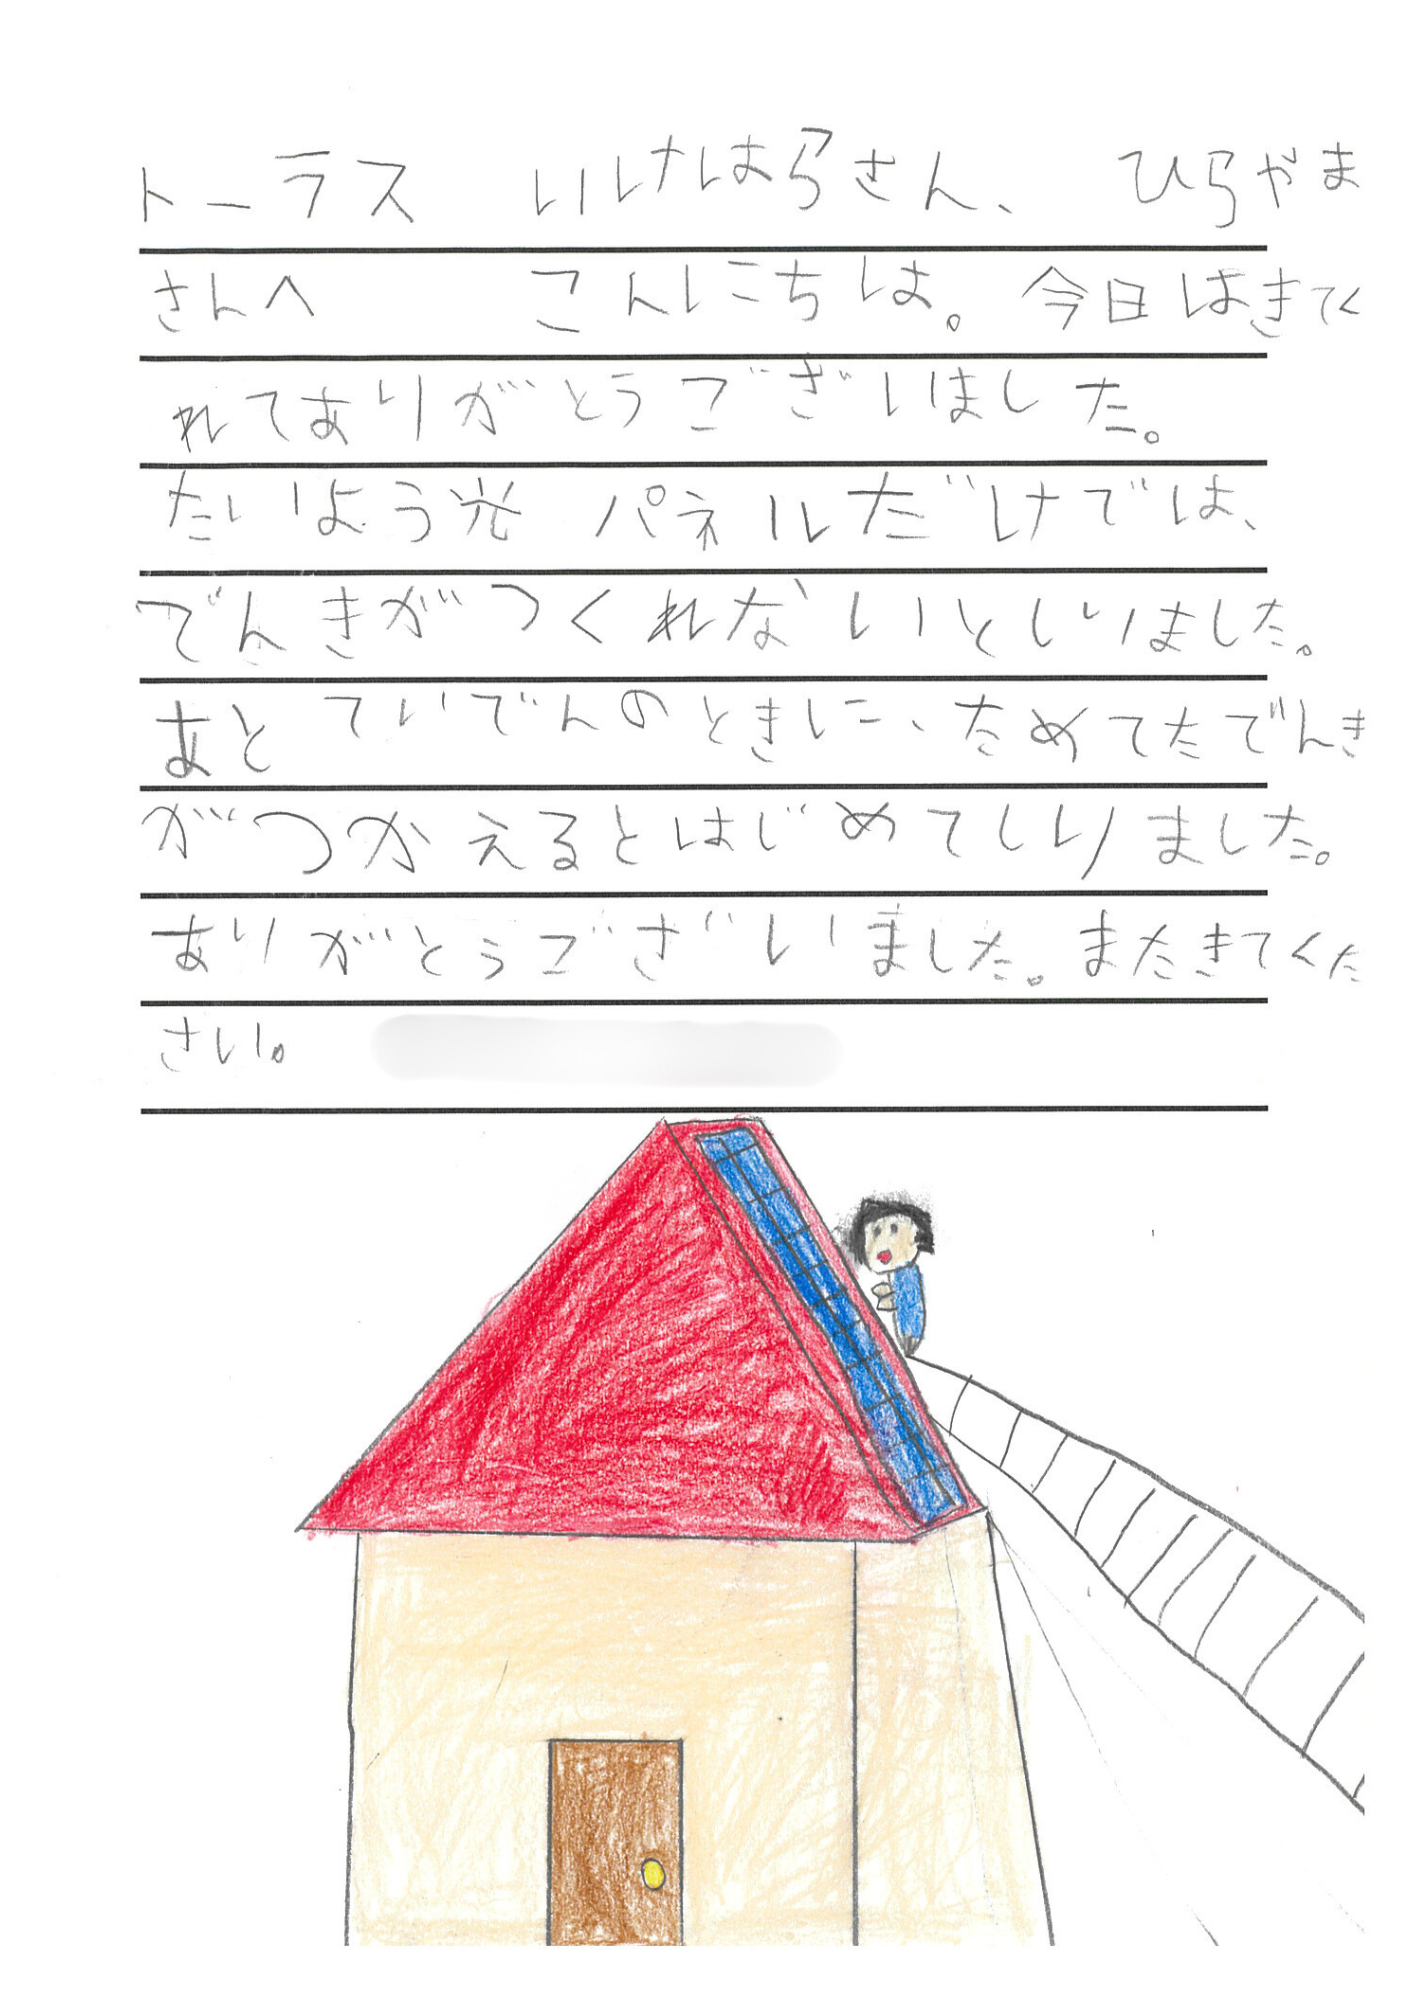 トーラス いけはらさん、 ひらやま
さんへ こんにちは。今日はきてく
れてありがとうございました。
たいよう光パネルだけでは、
でんきがつくれないとしりました。
あと ていでんのときに、ためてたでんき
がつかえるとはじめてしりました。
ありがとうございました。またきてくた
さい。